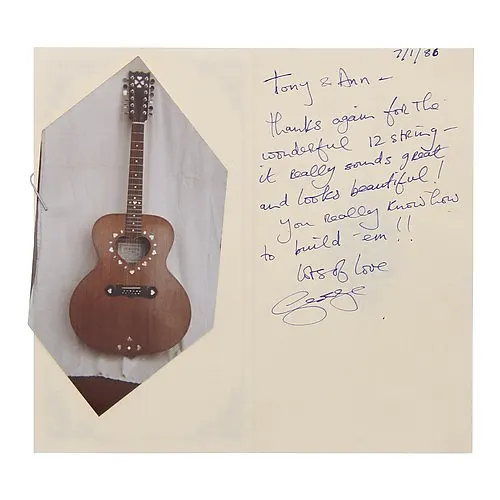 7/1/86
Tony & Ann –
thanks again for the
wonderful 12 string –
it really sounds great
and looks beautiful!
you really know how
to build 'em!!
lots of love
George